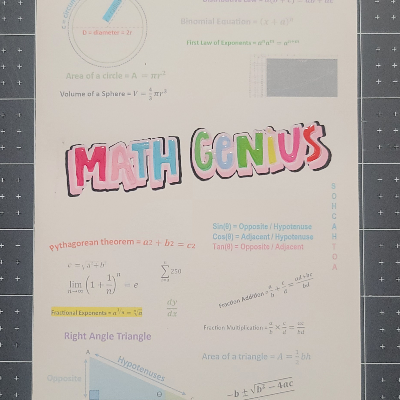 D = diameter = 2r
Binomial Equation = (x + a)ⁿ
First Law of Exponents = aⁿaᵐ = aⁿ⁺ᵐ
Area of a circle = A = πr²
Volume of a Sphere = V = 4/3 πr³
MATH GENIUS
SOHCAHTOA
Sin(θ) = Opposite / Hypotenuse
Cos(θ) = Adjacent / Hypotenuse
Tan(θ) = Opposite / Adjacent
Pythagorean theorem = a2 + b2 = c2
lim n→∞ (1 + 1/n)ⁿ = e
dy/dx
Fraction Addition = a/b + c/d = ad+bc/bd
Fractional Exponents =
Fraction Multiplication = a/b × c/d = ac/bd
Right Angle Triangle
Area of a triangle = A = 1/2 bh
A
Hypotenuses
Opposite
-b ± √b² − 4ac